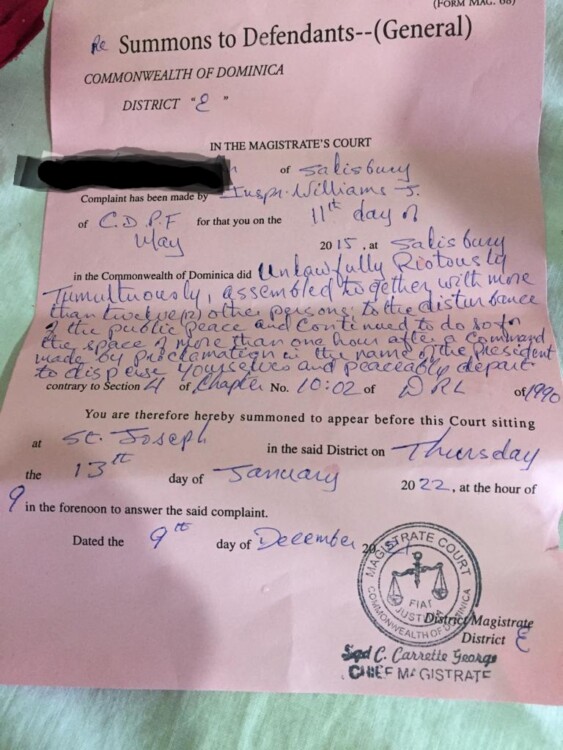 (FORM MAG. 68)
Re Summons to Defendants--(General)
COMMONWEALTH OF DOMINICA
DISTRICT "E"
IN THE MAGISTRATE'S COURT
of Salisbury
Complaint has been made by Inspr. Williams J.
of C.D.P.F for that you on the 11th day of
May 2015, at Salisbury
in the Commonwealth of Dominica did Unlawfully Riotously
Tumultuously, assembled together with more
than twelve other persons to the disturbance
of the public peace and continued to do so for
the space of more than one hour after a command
made by proclamation in the name of the president
to disperse yourselves and peaceably depart
contrary to Section 4 of Chapter No. 10:02 of WRL of 1990
You are therefore hereby summoned to appear before this Court sitting
at St. Joseph in the said District on Thursday
the 13th day of January 2022, at the hour of
9 in the forenoon to answer the said complaint.
Dated the 9th day of December 20
MAGISTRATE COURT
FIAT
JUSTITIA
COMMONWEALTH OF DOMINICA
District Magistrate
District E
Sgd C. Carrette George
CHIEF MAGISTRATE